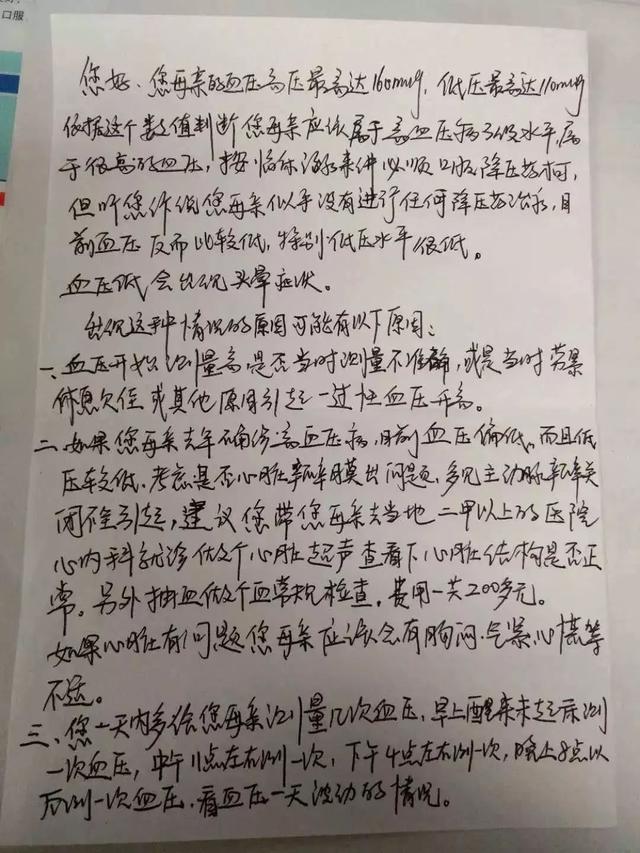 口服
您好、您母亲的血压高压最高达160mmg,低压最高达110mmg
依据这个数值判断您母亲应该属于高血压病3级水平,属
于很高的血压,按临床治疗来件必须口服降压药柯,
但听您作说您母亲似乎没有进行任何降压药治疗,目
前血压反而比较低,特别低压水平很低。
血压低会出现头晕症状。
出现这种情况的原因可能有以下原因:
一、血压开始测量高是否当时测量不准确,或是当时劳累
休息欠佳或其他原因引起一过性血压升高。
二、如果您母亲去年确诊高血压病,目前血压偏低。而且低
压较低.考虑是否心脏瓣膜出问题,多见主动脉瓣关
闭不全引起,建议您带您母亲去当地二甲以上的医院
心内科就诊做个心脏超声查看下心脏结构是否正
常。另外抽血做个血常规检查,费用一共200多元。
如果心脏有问题您母亲应该会有胸闷.气紧.心慌等
不适。
三、您一天内多给您母亲测量几次血压,早上醒来未起床测
一次血压,中午11点左右测一次,下午4点左右测一次,晚上8点以
后测一次血压,看血压一天波动的情况。